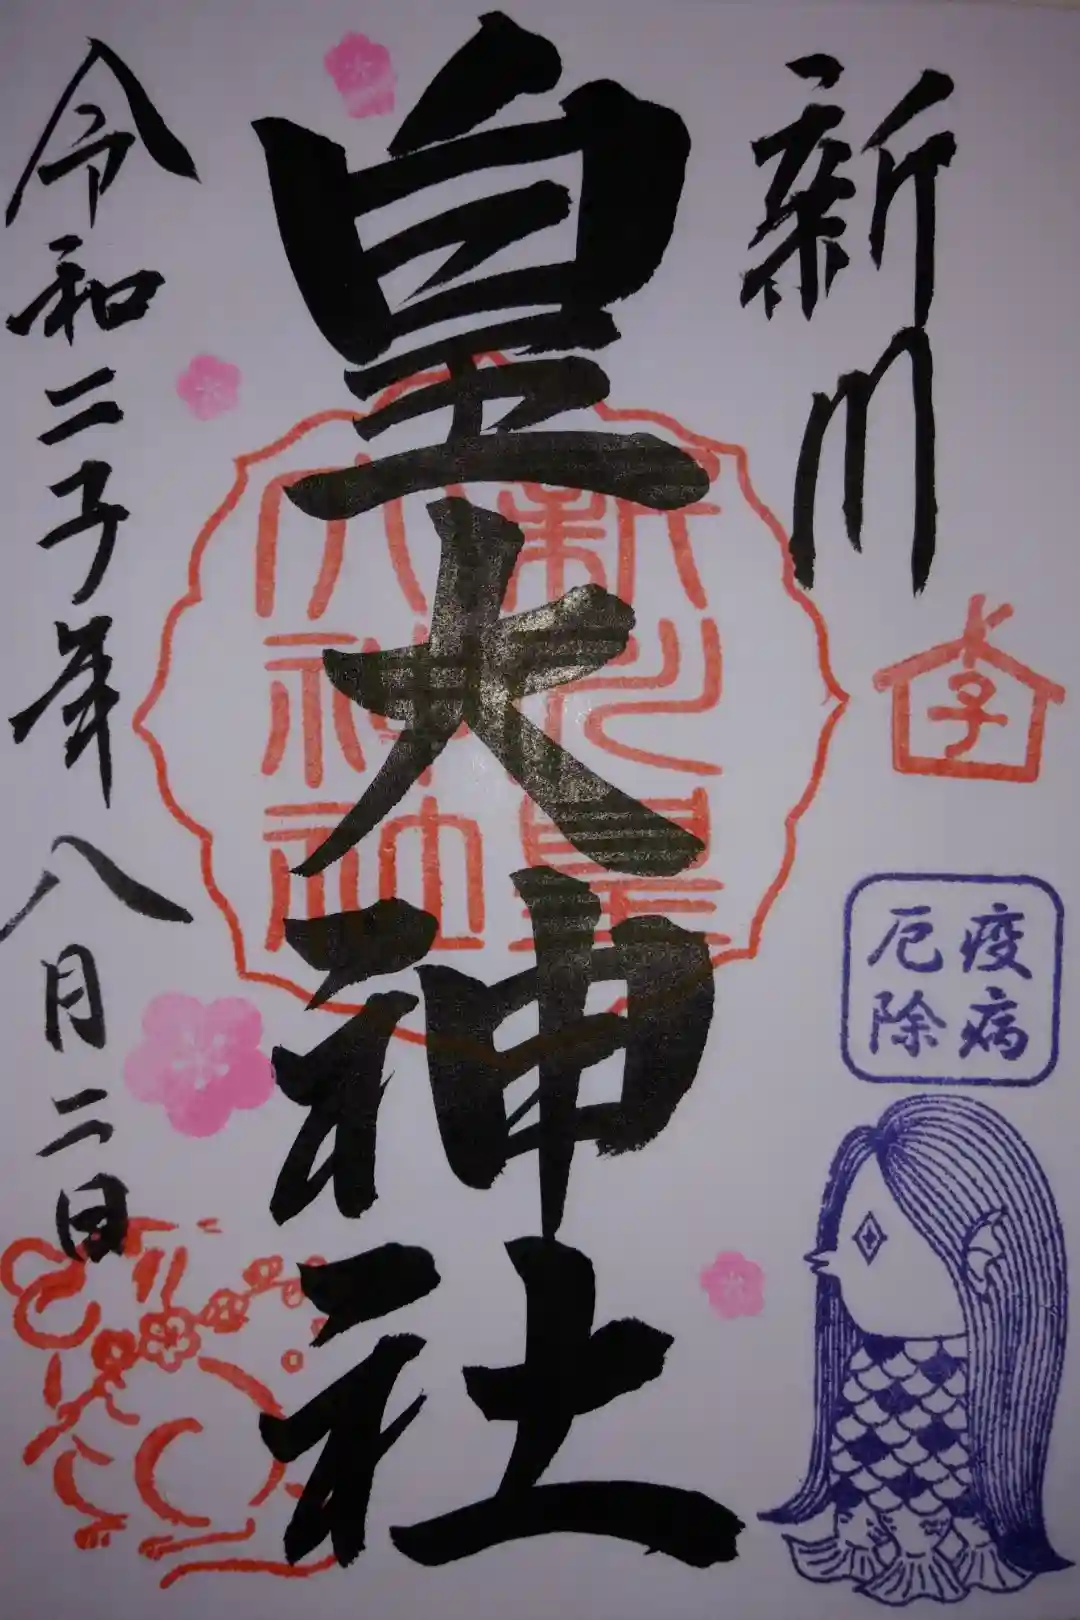 新川
子
疫病
厄除
皇大神社
新川皇
大神社
令和二子年八月二日